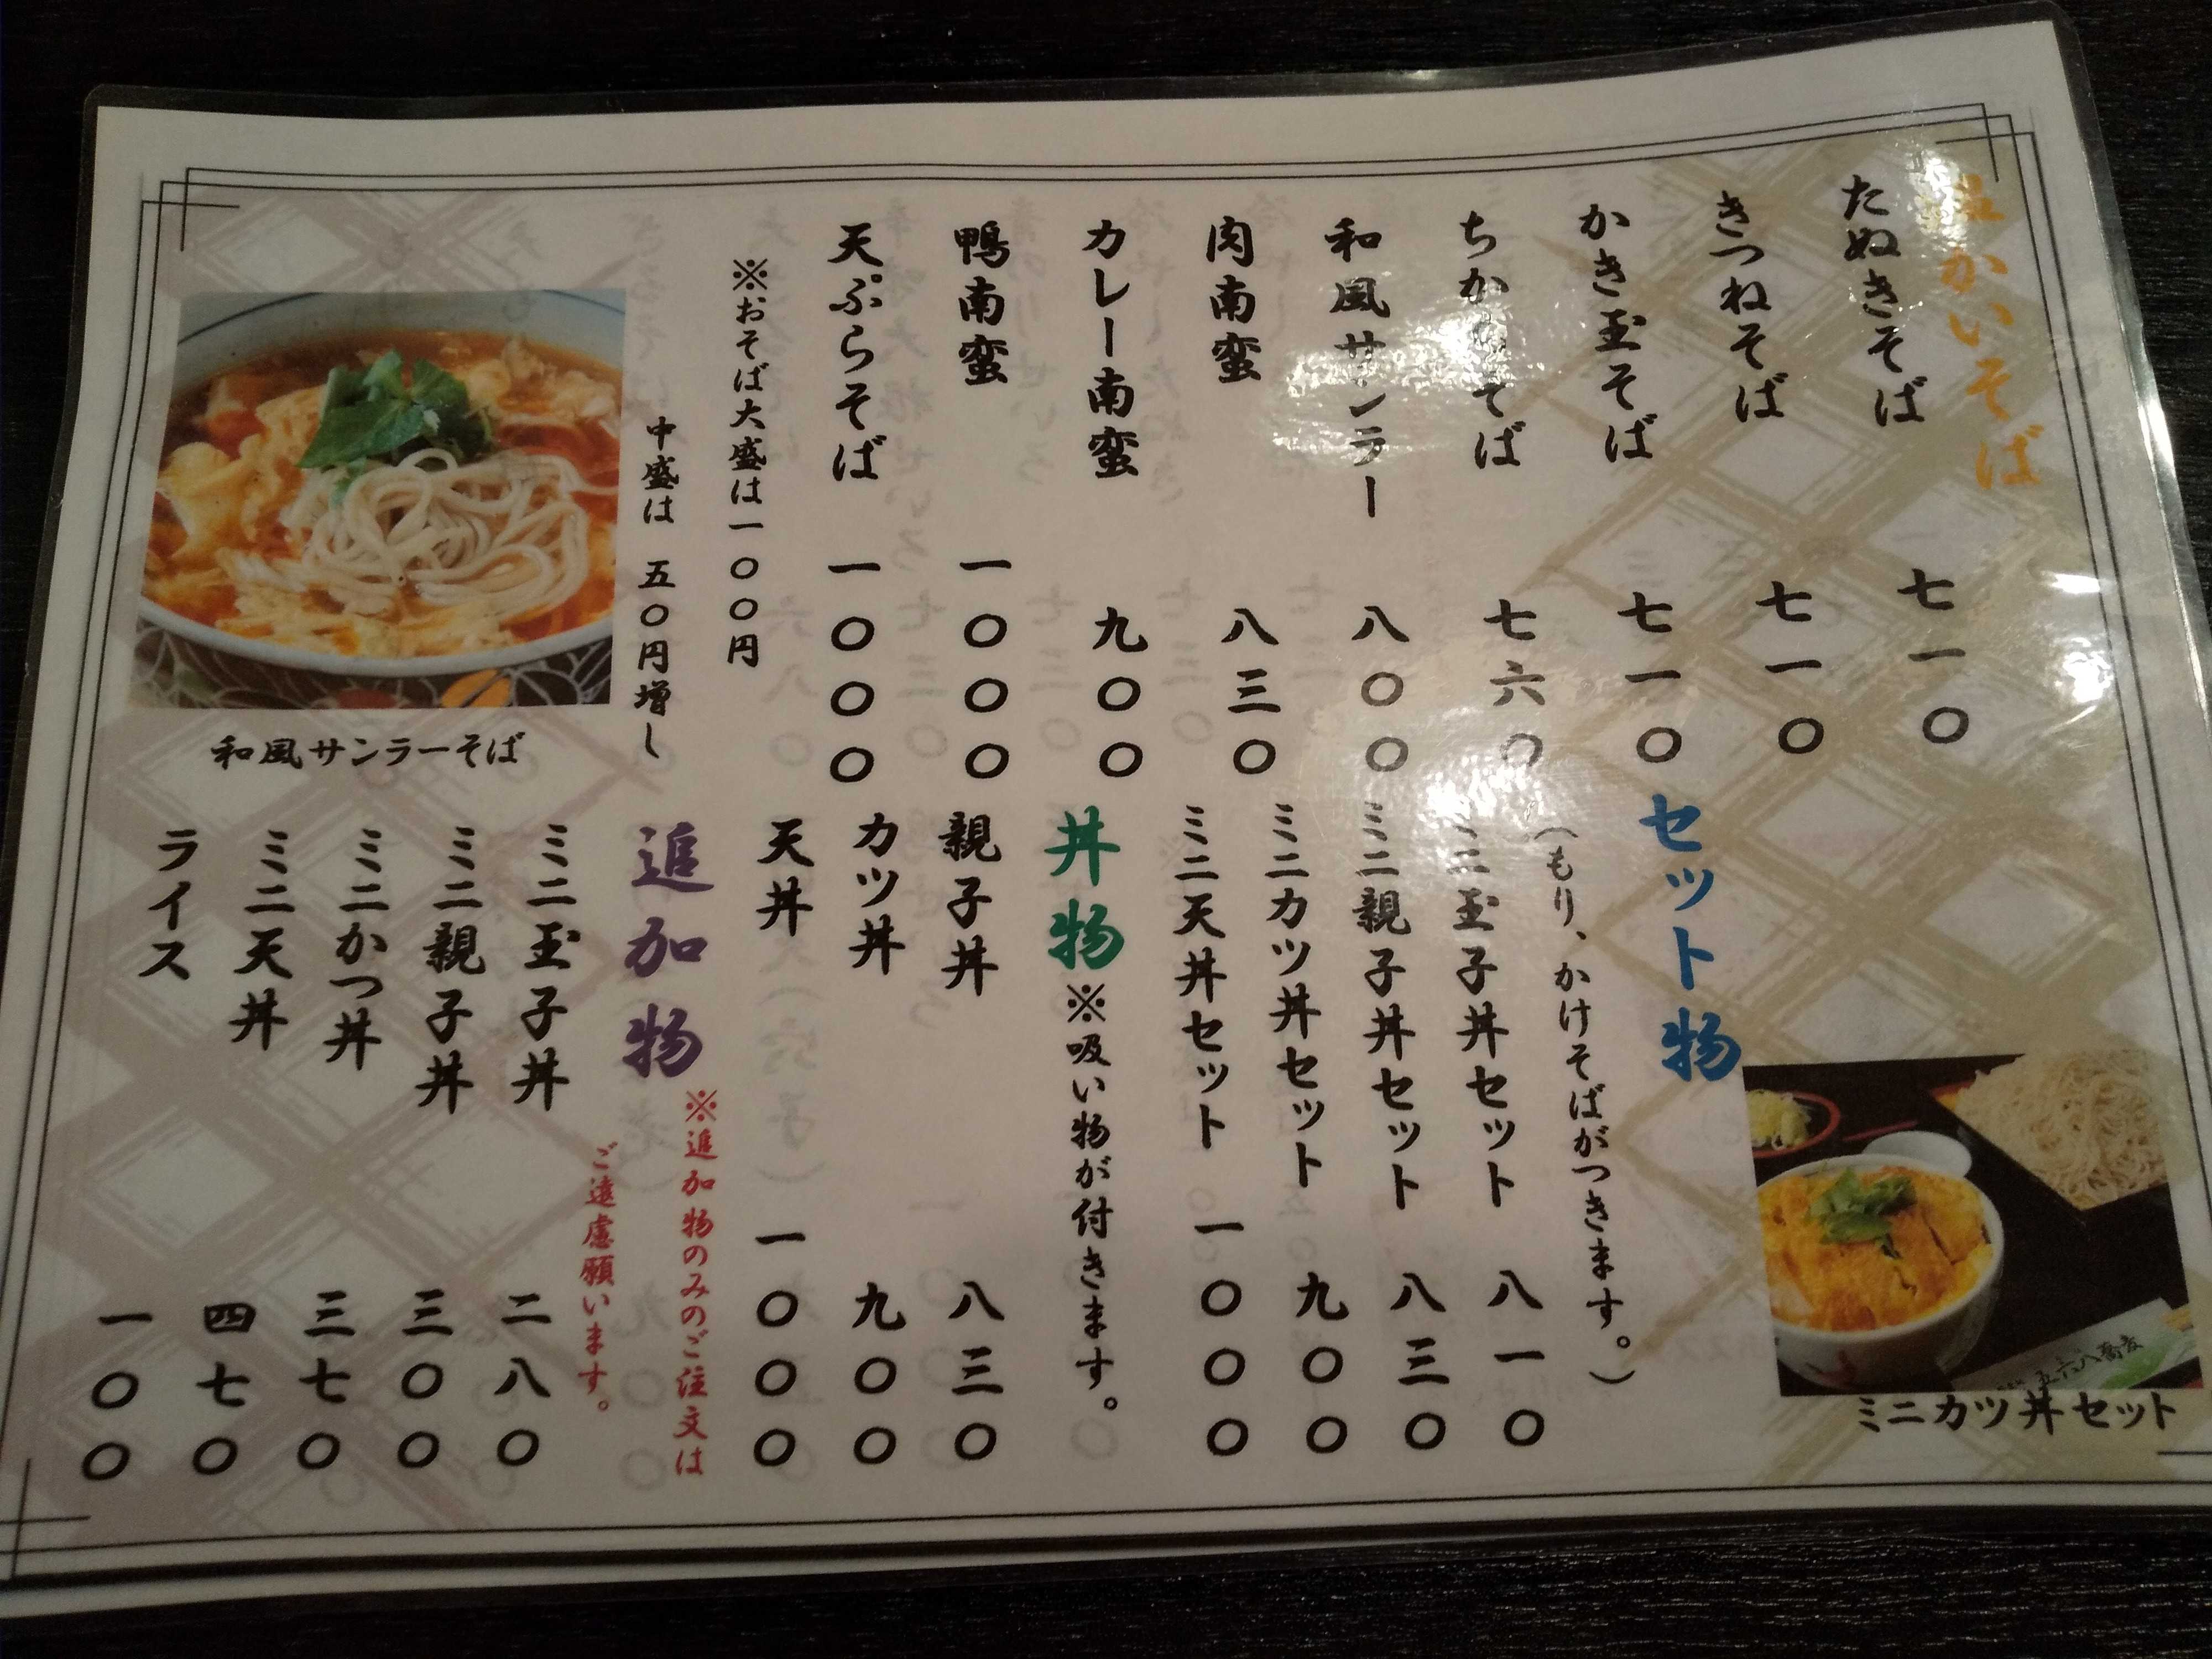 温かいそば
たぬきそば 七一〇
きつねそば 七一〇
かき玉そば 七一〇
ちからそば 七六〇
和風サンラー 八〇〇
肉南蛮 八三〇
カレー南蛮 九〇〇
鴨南蛮 一〇〇〇
天ぷらそば 一〇〇〇
※おそば大盛は一〇〇円
中盛は 五〇円増し
和風サンラーそば
セット物
(もり、かけそばがつきます。)
ミニ玉子丼セット 八一〇
ミニ親子丼セット 八三〇
ミニカツ丼セット 九〇〇
ミニ天丼セット 一〇〇〇
丼物 ※吸い物が付きます。
親子丼 八三〇
カツ丼 九〇〇
天丼 一〇〇〇
追加物 ※追加物のみのご注文は
ご遠慮願います。
ミニ玉子丼 二八〇
ミニ親子丼 三〇〇
ミニかつ丼 三七〇
ミニ天丼 四七〇
ライス 一〇〇
五六八蕎麦
ミニカツ丼セット